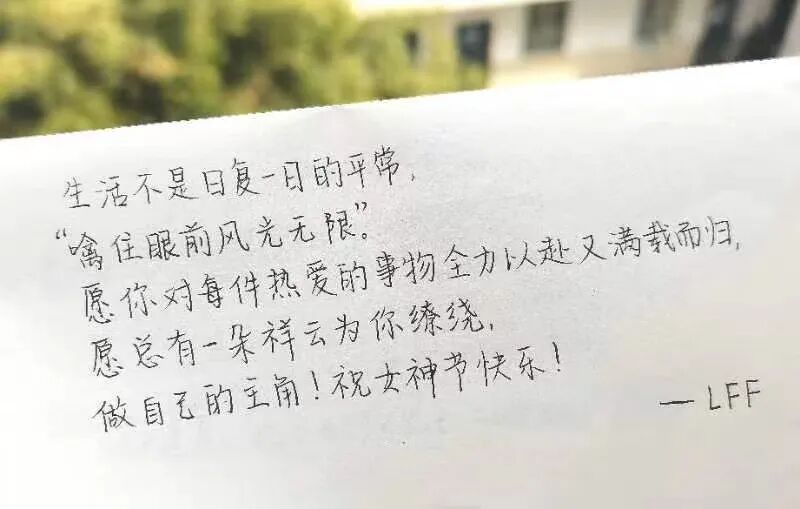 生活不是日复一日的平常，
“噙住眼前风光无限”。
愿你对每件热爱的事物全力以赴又满载而归，
愿总有一朵祥云为你缭绕，
做自己的主角！祝女神节快乐！
— LFF